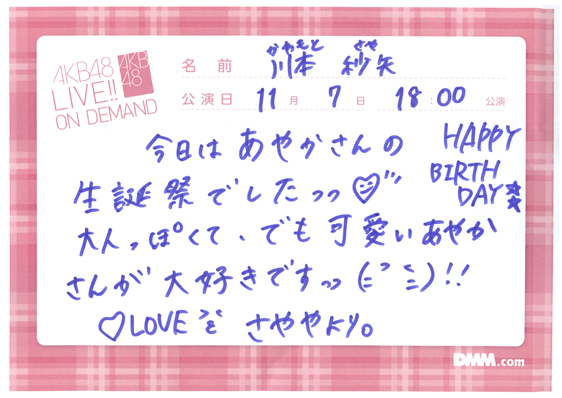 AKB48
LIVE!!
ON DEMAND
AKB
48
名前 かわもと さや
川本 紗矢
公演日 11月 7日 18:00 公演
今日はあやかさんの
HAPPY
BIRTH
DAY☆☆
生誕祭でしたっっ♡"
大人っぽくて、でも可愛いあやか
さんが大好きですっっ(ﾆﾞﾆ)!!
♡LOVEを さややより。
DMM.com